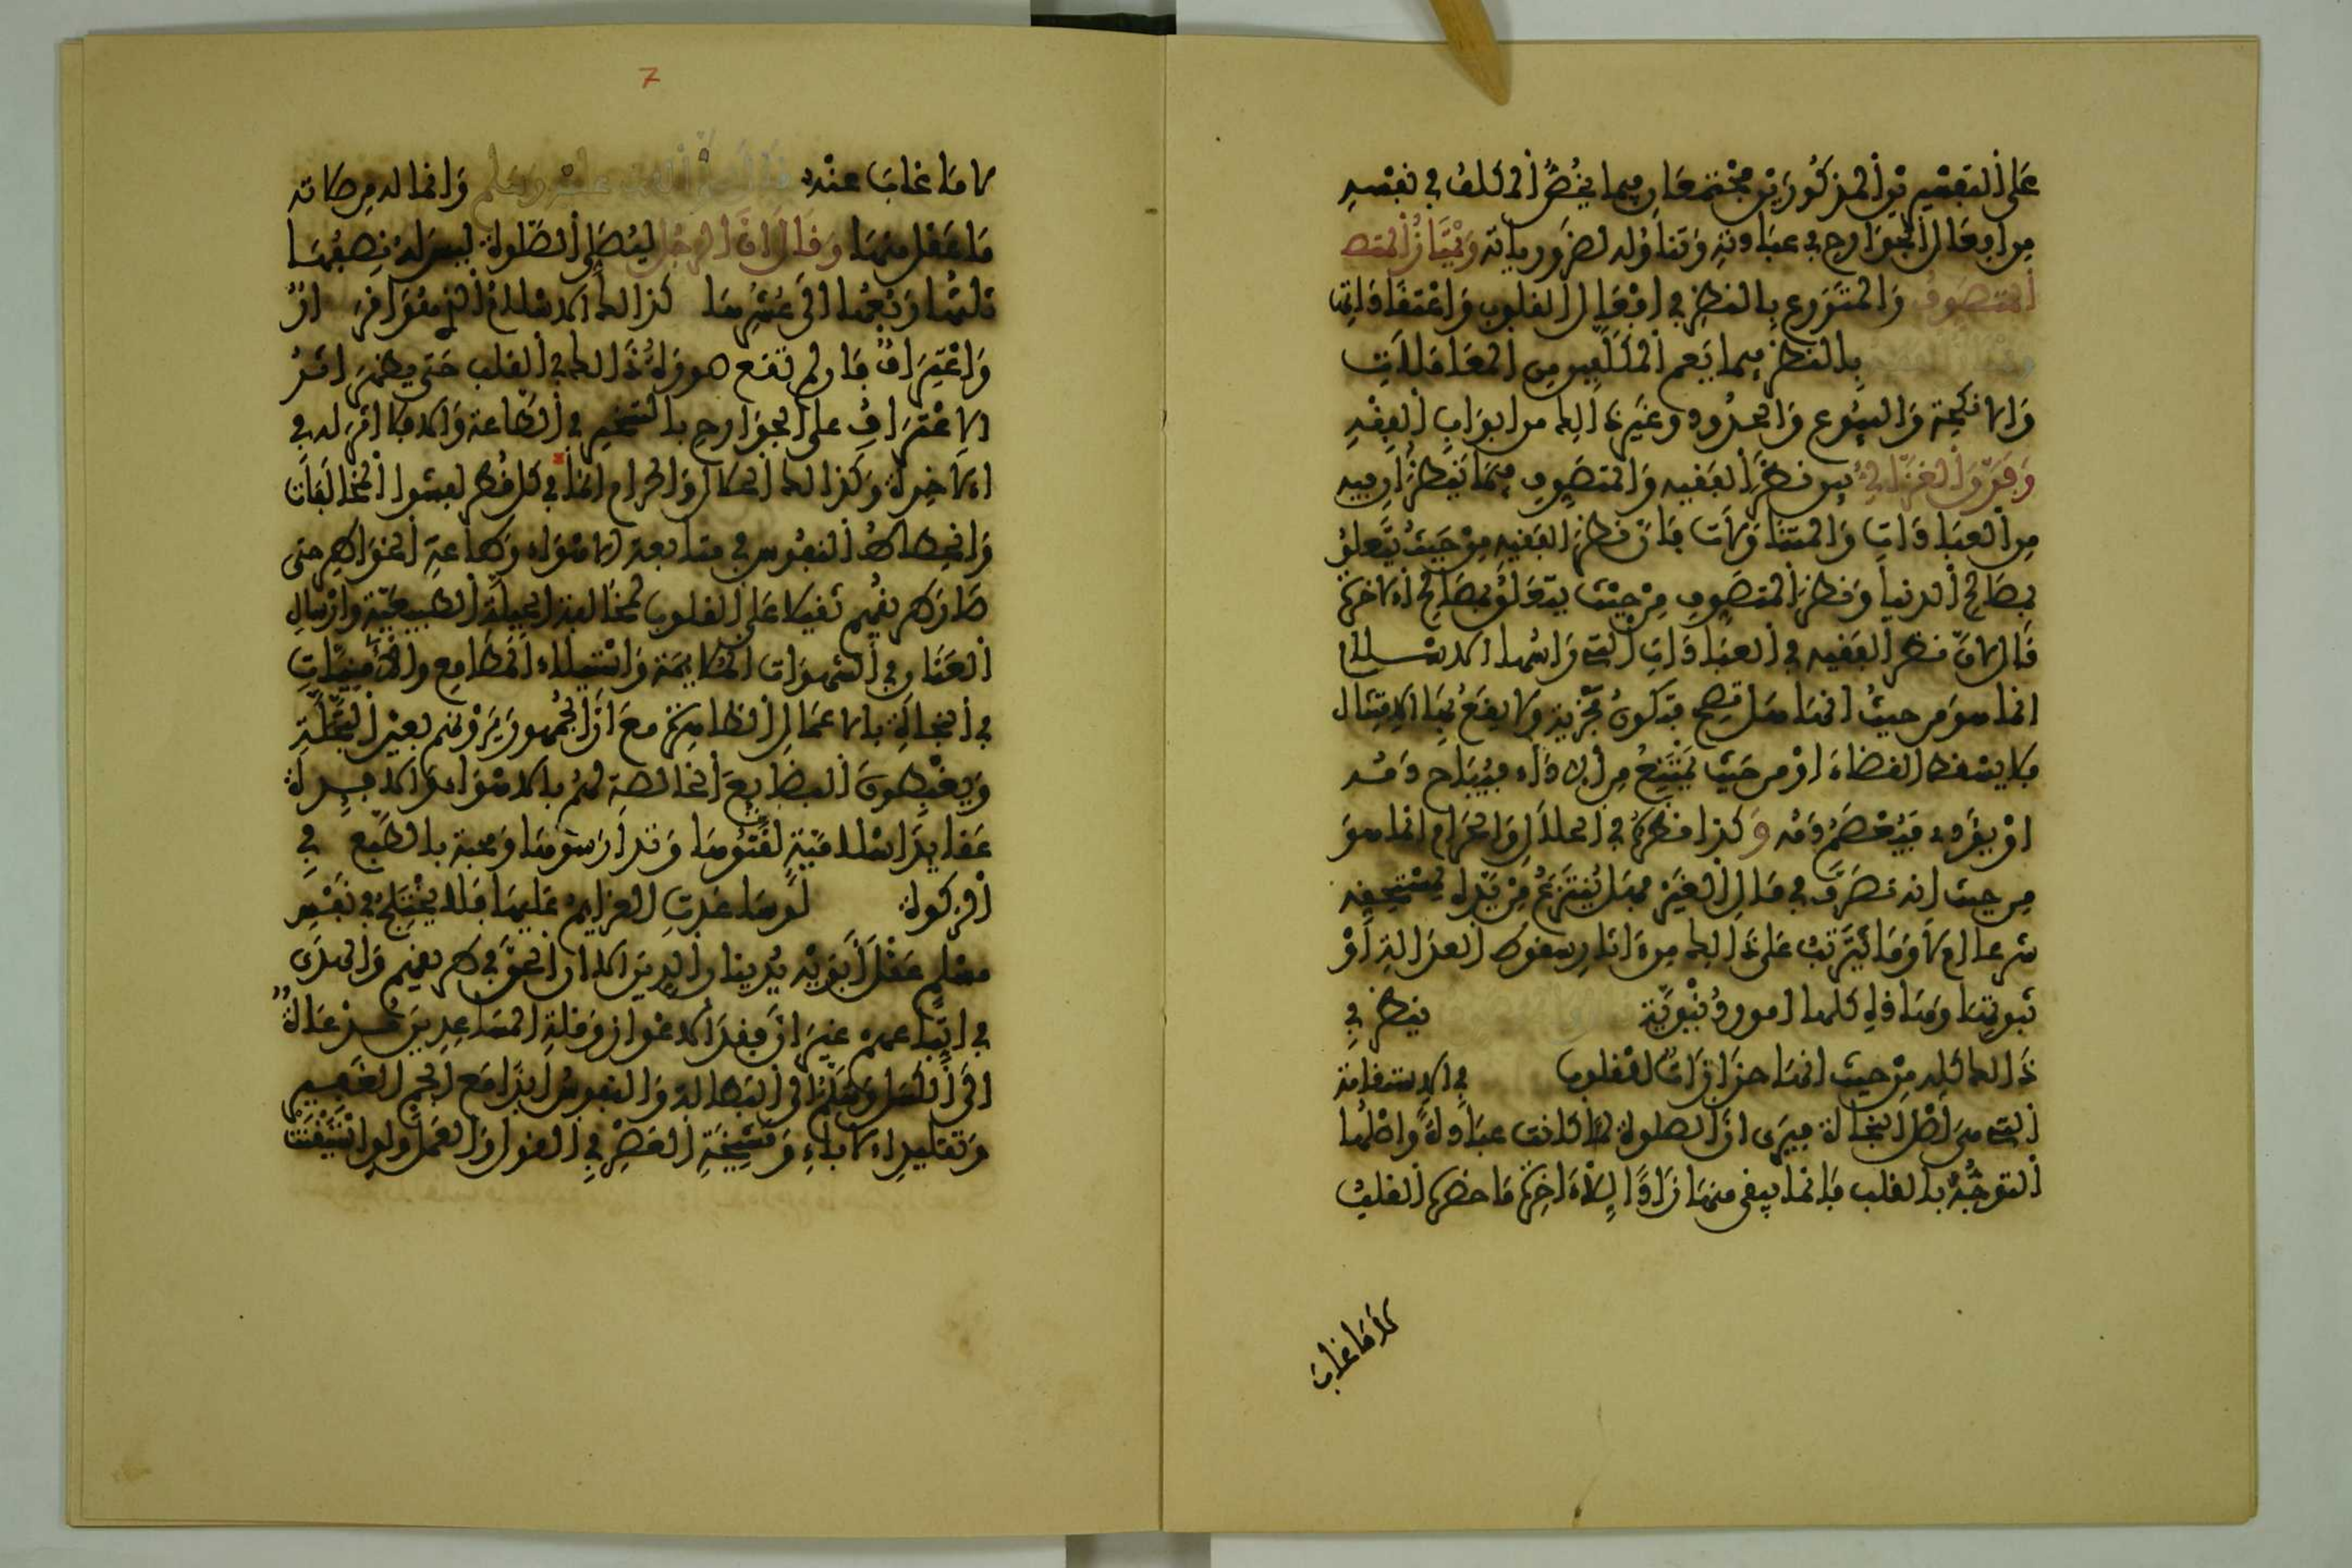 على التفسيرين المذكورين مجتمعان فيما يخص المكلف في نفسه
من افعال الجوارح في عباداته وتناوله لضرورياته ويمتاز المتصـ
المتصوف والمتورع بالنظر في افعال القلوب واعتقاداتها
بالنظر فيما يعم المكلفين من المعاملات
والانكحة والبيوع والحدود وغير ذالك من ابواب الفقه
وفرق الغزالي بين نظر الفقيه والمتصوف فيما ينظران فيه
من العبادات والمتناولات فان نظر الفقيه من حيث يتعلق
بصالح الدنيا ونظر المتصوف من حيث يتعلق بمصالح الاخرة
قال لان نظر الفقيه في العبادات التي راسها الاسلام
انما هو من حيث انها هل تصح فتكون مجزية ولا يقع بها الامتثال
فلا يسقط القضاء او من حيث يمتنع من الاداء فيباح دمه
او يقر به فيعصم دمه وكذا نظره في الحلال والحرام انما هو
من حيث انه تصرف في مال الغير فهل ينتزع من يده لمستحقه
شرعا ام لا وما يترتب على ذالك من ءاثار سقوط العدالة او
ثبوتها وهاذه كلها امور دنيوية ينظر في
ذالك كله من حيث انها حزازات القلوب في الاستقامة
التي هي اصل النجاة فيرى ان الصلوة لما كانت عبادة واصلها
التوجه بالقلب فانما يبقى منها زادا للاخرة ما حضره القلب
لا ما غاب
لا ما غاب عنه قال صلى الله عليه وسلم وانما له من صلاته
ما عقل منها وقال ان الرجل ليصلي الصلوة ليس له نصفها
ثلثها ربعها الى عشرها كذالك الاسلام الذي هو اقرار
واعتراف فان لم تقع صورة ذالك في القلب حتى يظهر اثر
الاعتراف على الجوارح بالتسخير في الطاعة والا فلا اثر له في
الاخرة وكذالك الحلال والحرام اما في كل قطر لفشوا المخالفات
وانحطاط النفوس في متابعة الاهواء وطاعة الخواطر حتى
صار طريقهم ثقيلا على القلوب لمخالفة الجبلة الطبيعية وارسال
العنان في الشهوات الملايمة واستيلاء المطامع والامنيات
في النجاة بالاعمال الظاهرة مع ان الجمهور يرونهم بعين التجلة
ويغبطون البضايع الخالصة لهم بالاسواق والاخرة
عقايد اسلامية لقنوها وتدارسوها ومحبة بالطبع في
افركوة لو ساعدت العزايم عليها فلا يختلج في نفس
مسلم عقل ابويه يدينان الدين الا ان الحق في طريقهم والهدى
في اتباعهم غير ان فقد الاعوان وقلة المساعدين مـن عادة
الى الكسل وميلها الى البطالة والنفوس ابدا مع الجم الغفير
وتقليد الاباء ومشيخة العصر في القول والعمل ولو استيقنت
7